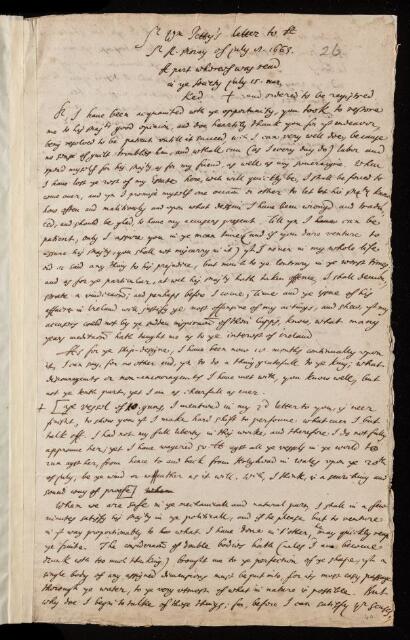 Sr Wm Petty's letter to Sr
Sr R. Moray of July 18. 1663.
26
A part whereof was read
in ye Society July 15. was
Red. + and ordered to be registred
Sr, I have been acquainted wth ye opportunity, you took to restore
me to his Maty good opinion, and doe heartily thank you for yt endeavor
being resolved to be patient untill it succeed, wch I can very well doe, because
no sense of guilt troubles me, and whilst I can (as I every day do) labor and
spend myself for his Maty as for my friend as well as my Soveraigne. When
I have lost ye rest of my Estate here, wch will quickly be, I shall be forced to
come over, and ye I promise myself one occasion or other to let his Maty know
how often and maliciously and upon what designe I have been wronged and traduced,
and should be glad, to have my accusers present. Till ye I hower can be
patient, only I assure you in ye mean time (and if you dare venture to
assure his Maty, you shall not miscarry in it) yt I never in my whole life
did or said any thing to his prejudice, but much to ye contrary in ye worst times
and as for ye particular, at wch his Maty hath taken offence, I shall demonstrate
a vindication, and perhaps before I come; Time and ye issue of his
affairs in Ireland will justify ye most offensive of my actings, and shew, yt my
accusers could not by ye sudden
years
As for ye Ship-designe, I have been now 10 months continually upon
it, I can say, for no other end, yn to do a thing gratefull to ye King; what
discouragments or non-encouragments I have met with, you know well, but
not ye tenth part, yet I am as chearfull as ever.
+ [ye vessel of 10 guns, I mentioned in my 2d letter to you, is neer
finisht, to shew you yt I make hard shift to performe, whatever I but
talk off. I had not my full liberty in this worke, and therefore I do not fully
approve her, yet I have wagered 50 lb agst all ye vessels in ye world to
run agst her, from hence to and back from Holyhead in Wales upon ye 20th
of July, be ye wind or weather as it will, wch, I think, is a searching and
sound way of proofe]
When we are safe in ye mechanicall and natural part, I shall in a few
minutes satisfy his Maty in ye politicall, and if he please but to venture
in yt way proportionably to her what I have done in t'other, he may quickly reap
ye fruits. The consideration of double bodies hath (unles I am become
drunk with too much thinking) brought me to ye perfection of ye shape, yt a
single body of any assigned dimensions must be put into, for its most easy passage
through ye water, to ye very utmost of what in nature is possible. But
why doe I begin to talke of these things; for, before I can satisfy yr Curiosity